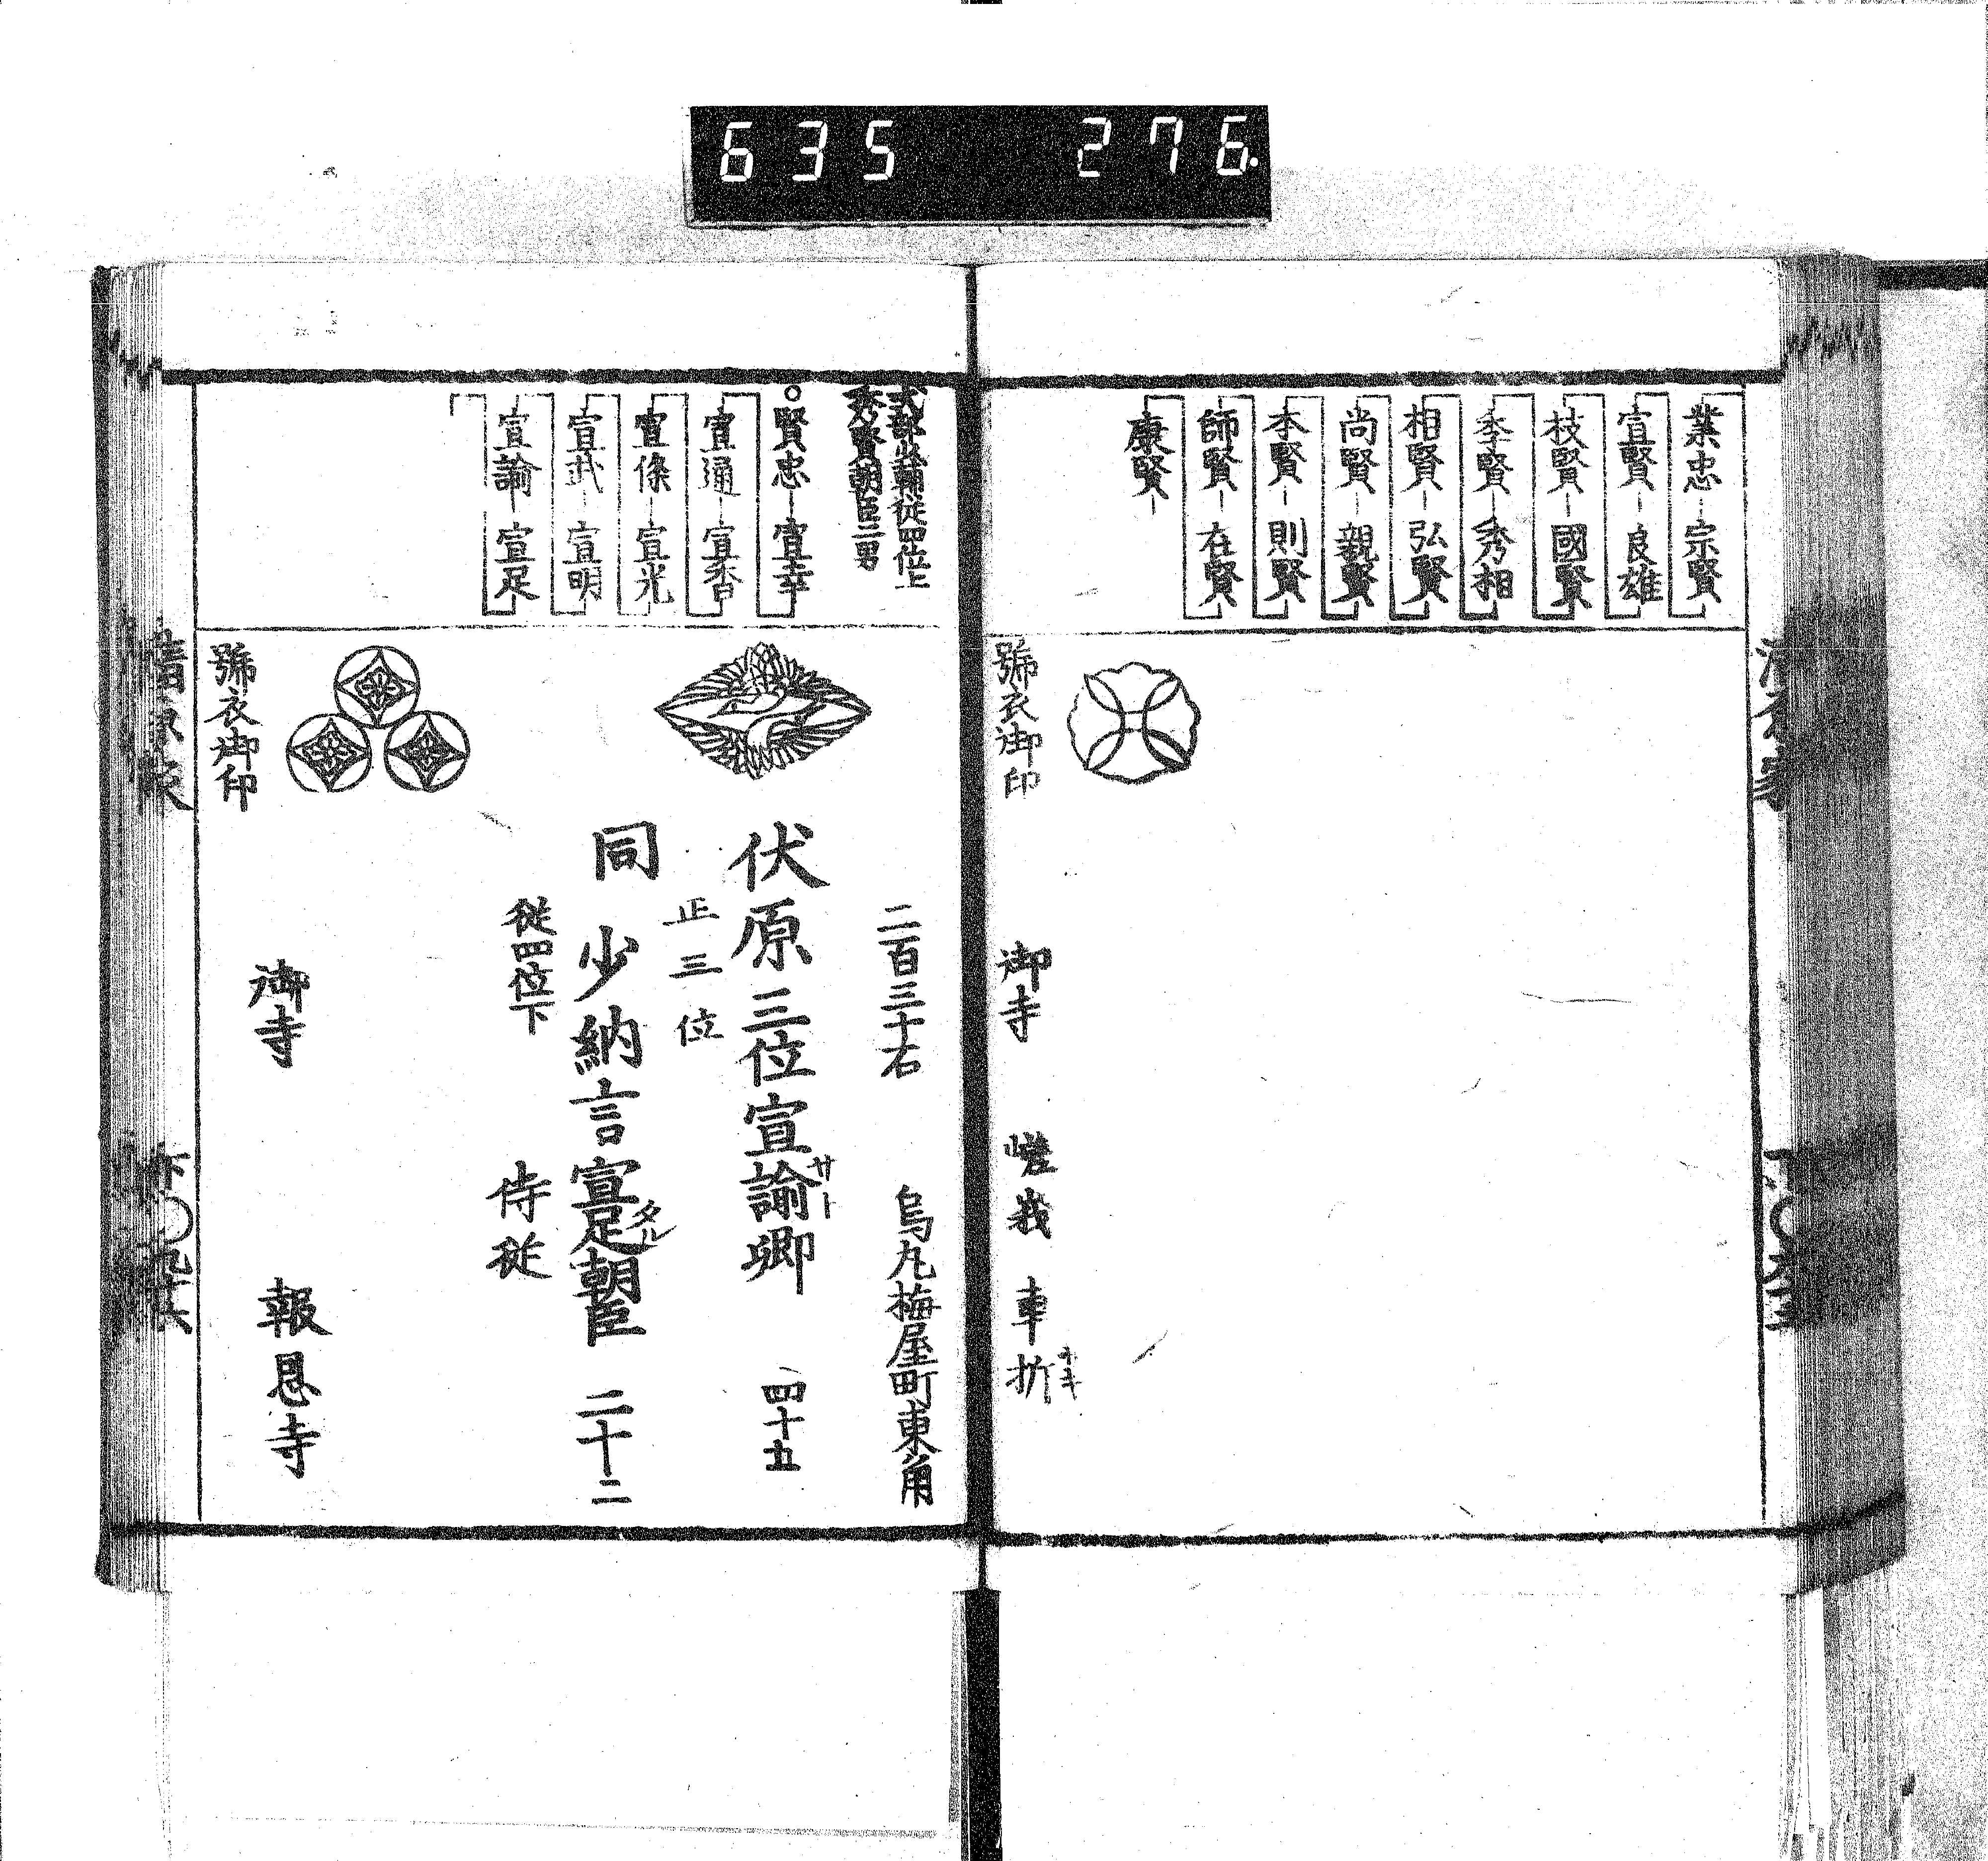 635 276.
業忠 宗賢
宣賢 良雄
枝賢 國賢
季賢 秀相
相賢 弘賢
尚賢 親賢
李賢 則賢
師賢 在賢
康賢
號衣御印
御寺
嵯峩 車折
サキ
式部少輔従四位上
秀賢朝臣二男
賢忠 宣幸
宣通 宣香
宣條 宣光
宣武 宣明
宣諭 宣足
二百三十石 烏丸梅屋町東角
伏原三位宣諭卿 四十五
サト
正三位
同 少納言宣足朝臣 二十二
タル
従四位下 侍従
御寺 報恩寺
號衣御印